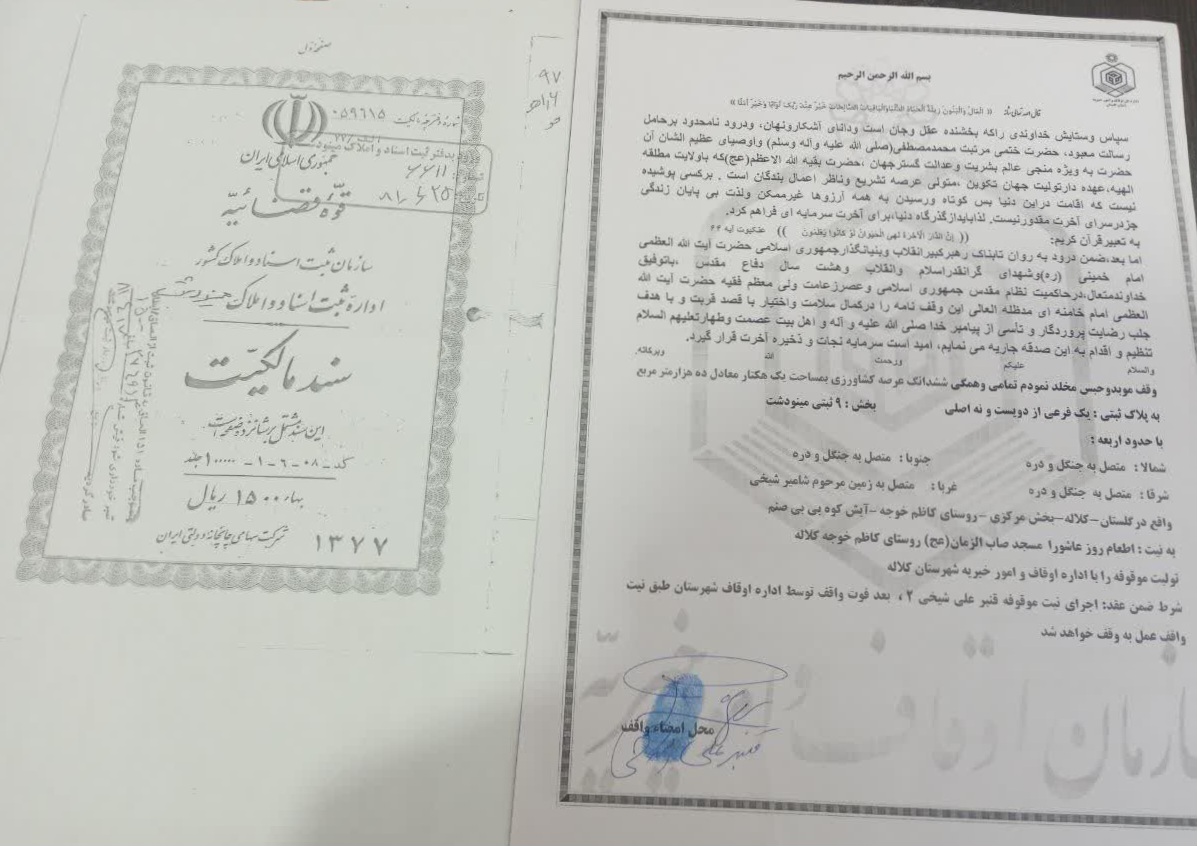 بسم الله الرحمن الرحیم
« المَالُ وَالبَنُونَ زِینَةُ الحَیَاةِ الدُّنْیَا وَالبَاقِیَاتُ الصَّالِحَاتُ خَیْرٌ عِنْدَ رَبِّکَ ثَوَابًا وَخَیْرٌ أَمَلًا »
سپاس وستایش خداوندی راکه بخشنده عقل وجان است ودانای آشکارونهان، ودرود نامحدود برحامل
رسالت معبود، حضرت ختمی مرتبت محمدمصطفی(صلی الله علیه وآله وسلم) واوصیای عظیم الشان آن
حضرت به ویژه منجی عالم بشریت وعدالت گسترجهان ،حضرت بقیه الله الاعظم(عج)که باولایت مطلقه
الهیه،عهده دارتولیت جهان تکوین ،متولی عرصه تشریع وناظر اعمال بندگان است . برکسی پوشیده
نیست که اقامت دراین دنیا بس کوتاه ورسیدن به همه آرزوها غیرممکن ولذت بی پایان زندگی
جزدرسرای آخرت مقدورنیست. لذابایدازگذرگاه دنیا،برای آخرت سرمایه ای فراهم کرد.
به تعبیرقرآن کریم: (( إِنَّ الدَّارَ الآخِرَةَ لَهِیَ الحَیَوَانُ لَوْ کَانُوا یَعْلَمُونَ )) عنکبوت آیه ۶۴
اما بعد،ضمن درود به روان تابناک رهبرکبیرانقلاب وبنیانگذارجمهوری اسلامی حضرت آیت الله العظمی
امام خمینی (ره)وشهدای گرانقدراسلام وانقلاب وهشت سال دفاع مقدس ،باتوفیق
خداوندمتعال،درحاکمیت نظام مقدس جمهوری اسلامی وعصرزعامت ولی معظم فقیه حضرت آیت الله
العظمی امام خامنه ای مدظله العالی این وقف نامه را درکمال سلامت واختیار با قصد قربت و با هدف
جلب رضایت پروردگار و تأسی از پیامبر خدا صلی الله علیه و آله و اهل بیت عصمت وطهارتعلیهم السلام
تنظیم و اقدام به این صدقه جاریه می نمایم، امید است سرمایه نجات و ذخیره آخرت قرار گیرد.
والسلام علیکم ورحمت الله وبرکاته.
وقف موبدوحبس مخلد نمودم تمامی وهمگی ششدانگ عرصه کشاورزی بمساحت یک هکتار معادل ده هزارمتر مربع
به پلاک ثبتی : یک فرعی از دویست و نه اصلی بخش : ۹ ثبتی مینودشت
با حدود اربعه :
شمالا : متصل به جنگل و دره جنوبا : متصل به جنگل و دره
شرقا : متصل به جنگل و دره غربا : متصل به زمین مرحوم شامیر شیخی
واقع در گلستان-کلاله-بخش مرکزی -روستای کاظم خوجه -آیش کوه بی بی صنم
به نیت : اطعام روز عاشورا مسجد صاب الزمان(عج) روستای کاظم خوجه کلاله
تولیت موقوفه را با اداره اوقاف و امور خیریه شهرستان کلاله
شرط ضمن عقد: اجرای نیت موقوفه قنبر علی شیخی ۲ ، بعد فوت واقف توسط اداره اوقاف شهرستان طبق نیت
واقف عمل به وقف خواهد شد
محل امضاء واقف
سازمان اوقاف و امور خیریه
صفحه اول
شماره دفترچه مالکیت ۰۵۹۶۱۵
ورود بدفتر ثبت اسناد و املاک مینودشت
جمهوری اسلامی ایران
قوّه قضائیّه
سازمان ثبت اسناد و املاک کشور
اداره ثبت اسناد و املاک مینودشت
سند مالکیّت
این سند مشتمل بر شانزده صفحه است
کد -۰۸ -۶ -۱ - ۱۰۰۰۰۰ جلد
بهاء ۱۵۰۰ ریال
شرکت سهامی چاپخانه دولتی ایران
۱۳۷۷